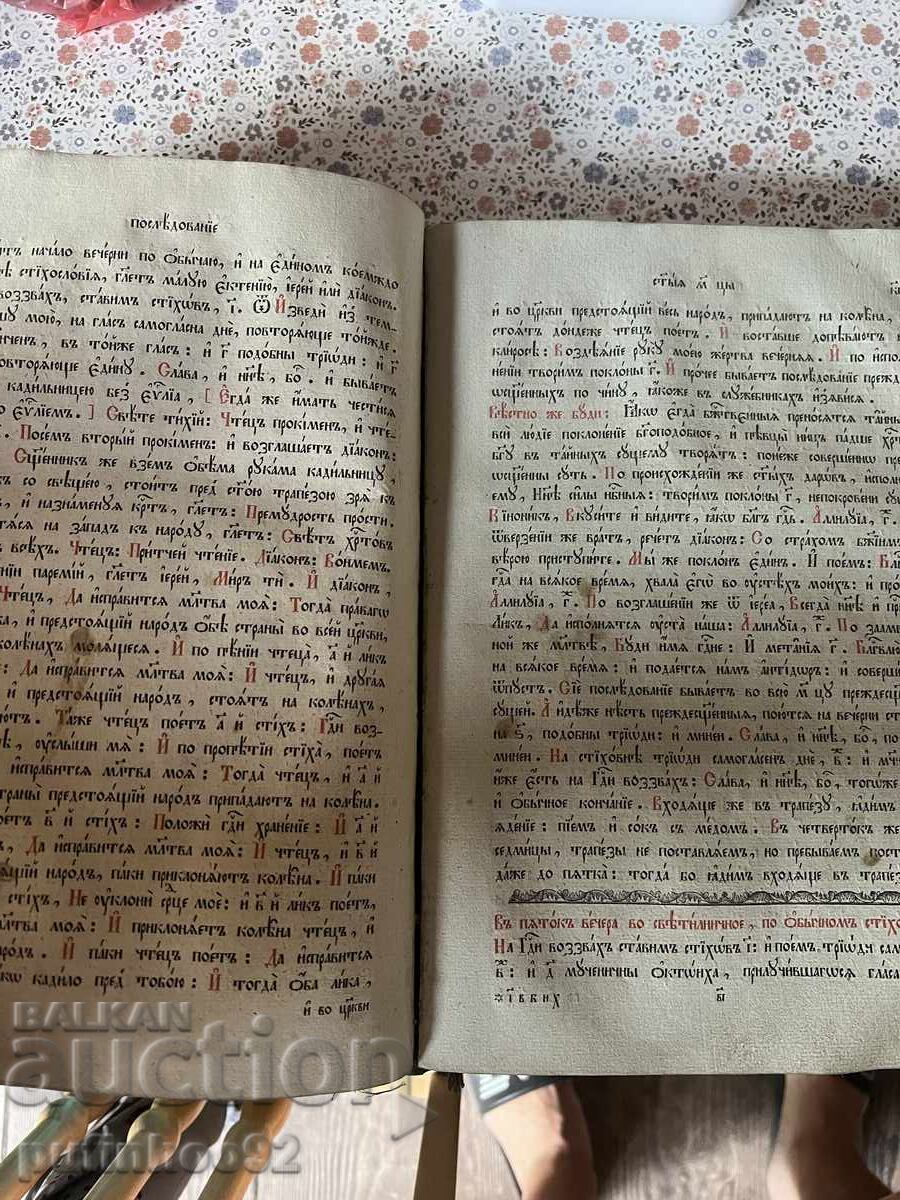 послѣдованїе
начало вечерни по ѻбычаю, и на є҆ди́номъ коемждо
стїхословїѧ, глетъ малую єктенїю, їерей или дїаконъ.
воззвахъ, ставимъ стїхѡвъ, ї҃. Ѿ Изведи из тем-
мою, на гласъ самогласна дне, повторяюще тойжде.
въ тойже гласъ: и г҃ подобны трїѡди: и г҃
повторяюще єдину. Слава, и нн҃ѣ, бо҃. и бываетъ
кадильницею без є҆ѵ҃лїа, [ Єгда же имать честися
є҆ѵ҃лїемъ. ] Свѣте тихїй: Чтецъ прокїменъ, и чте-
Поемъ вторый прокїменъ: и возглашаетъ дїаконъ:
Сщ҃енникъ же вземъ обѣма рукама кадильницу,
со свѣщею, стоитъ пред ст҃ою трапезою зря къ
и назнаменуя крт҃ъ, глетъ: Премудрость прости.
на западъ къ народу, глетъ: Свѣтъ хрт҃овъ
всѣхъ. Чтецъ: Притчей чтенїе. Дїаконъ: Вонмемъ.
паремїй, глетъ їерей, Миръ ти. И дїаконъ,
Чтецъ, Да исправится мл҃тва моя: Тогда праваѧ
и предстоящїй народъ обѣ страны во всей цр҃кви,
колѣнахъ молящеся. И по пѣнїи чтеца, а҃ й ликъ
Да исправится мл҃тва моя: И чтецъ, и другая
и предстоящїй народъ, стоятъ на колѣнахъ,
Таже чтецъ поетъ а҃ й стїхъ: Гд҃и воз-
услыши мя: И по пропѣтїи стїха, поетъ
исправится мл҃тва моя: Тогда чтецъ, и а҃ й
страны предстоящїй народъ припадаютъ на колѣна.
в҃ й стїхъ: Положи гд҃и храненїе: И а҃ й
Да исправится мл҃тва моя: И чтецъ, и в҃ й
народъ, паки приклоняютъ колѣна. И паки
стїхъ, Не уклони ср҃це мое: и в҃ й ликъ поетъ,
мл҃тва моя: И приклоняетъ колѣна чтецъ, и
И паки чтецъ поетъ: Да исправится
кадило пред тобою: И тогда оба лика,
и во цр҃кви
ст҃ыя м҃ цы
и во цр҃кви предстоящїй весь народъ, припадаютъ на колѣна,
стоятъ дондеже чтецъ поетъ. И воставше допѣваютъ
кѷлїросѣ: Воздѣянїе руку моею жертва вечерняя. И по испол-
ненїи творимъ поклоны г҃. И прочее бываетъ послѣдованїе прежд-
ѡсщ҃енныхъ по чину, якоже въ служебникахъ изъявися.
Вѣстно же буди: Якѡ єгда бж҃твенныя преносятся тайны,
всѝ людїе поклоненїе бг҃оподобное, и пѣвцы ницъ падше хрт҃у
бг҃у въ тайныхъ сущему творятъ: понеже совершенны пре-
ѡсщ҃енны суть. По происхожденїи же ст҃ыхъ дарѡвъ, исполн-
ему, Нн҃ѣ силы нб҃ныя: творимъ поклоны г҃, непокровени
Кїноникъ, Вкусите и видите, якѡ бл҃гъ гд҃ь. Аллилуїа, г҃.
ѿверзенїи же вратъ, речетъ дїаконъ: Со страхомъ бж҃їимъ
вѣрою приступите. Мы же поклонъ єдинъ. И поемъ:
гд҃а на всякое время, хвала єгѡ во устѣхъ моихъ:
Аллилуїа, г҃. По возглашенїи же ѿ їереа, Всегда нн҃ѣ и
Ликъ, Да исполнятся уста наша: Аллилуїа, г҃. По заам-
ной же мл҃твѣ, Буди имя гд҃не: И метанїя г҃.
на всякое время: и подается намъ антїдѡръ: и совершен-
ѿпустъ. Сїе послѣдованїе бываетъ во всю м҃ цу преждесщ҃-
сущей. Идѣже нѣсть преждесщ҃енныя, поются на вечерни
на ѕ҃, подобны трїѡди: и минеи. Слава, и нн҃ѣ, бо҃, по
минеи. На стїховнѣ трїѡди самогласенъ дне, в҃: и мч҃н-
иже єсть на Гд҃и воззвахъ: Слава, и нн҃ѣ, бо҃, тогѡже
и обычное кончанїе. Входяще же въ трапезу, ядимъ
яденїе: пїемъ и сокъ съ медомъ. Въ четвертокъ же
седмицы, трапезы не поставляемъ, но пребываемъ
даже до пятка: тогда бо ядимъ входяще въ трапез-
Въ пятокъ вечера во свѣтилничное, по обычномъ
На Гд҃и воззвахъ ставимъ стїховъ ї҃: и поемъ трїѡди сам-
в҃: и д҃ мученичны ѻктѡиха, прилучившагося гласа
в҃ї
BALKAN
auction
putinkoo92